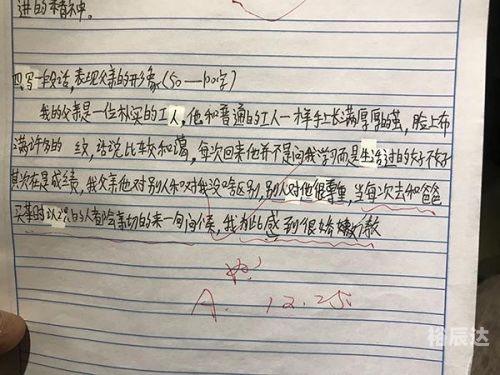 进的精神。
四.写一段话,表现父亲的形象(50—100字)
我的父亲是一位朴实的工人,他和普通的工人一样手上长满厚厚的茧,脸上布
满许多的 纹,话说比较和蔼,每次回来他并不是问我学习而是生活过的好不好
其次在是成绩,我父亲他对别人和对我没啥区别,别人对他很尊重,当每次去和爸爸
买菜时认识的人都会亲切的来一句问候,我为此感到很骄傲
A. 12.25
裕辰达